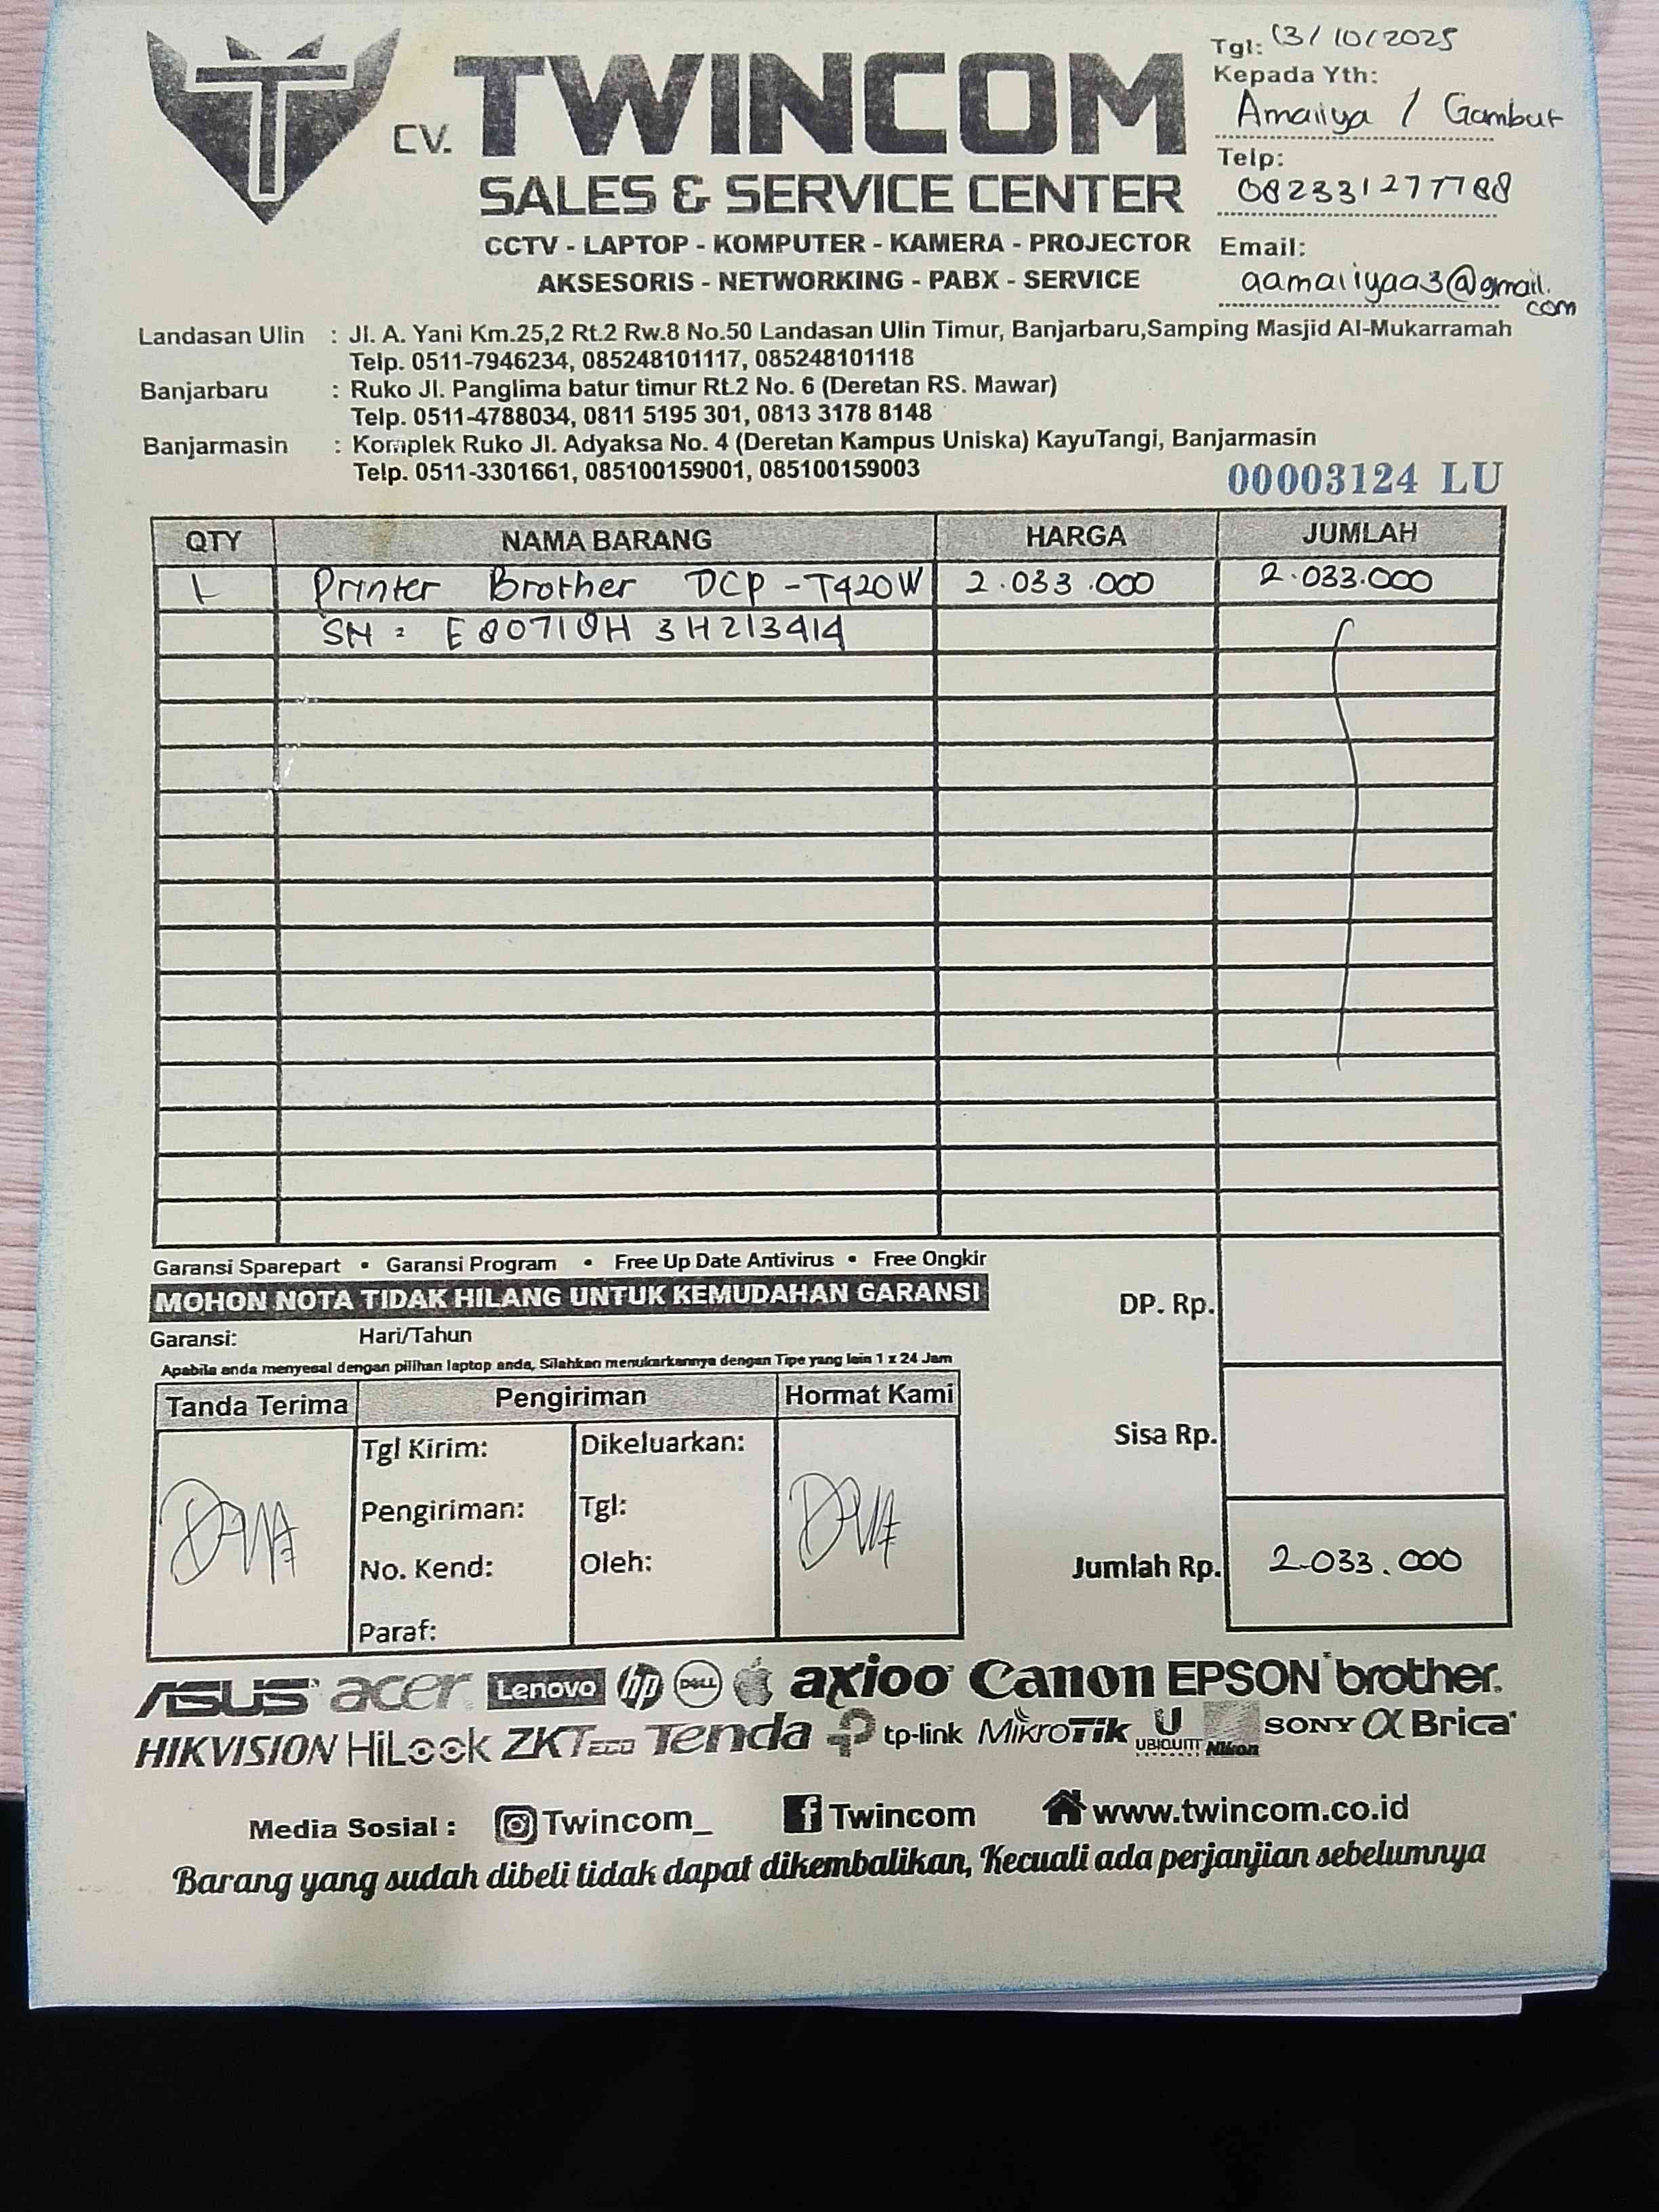 CV. TWINCOM
SALES & SERVICE CENTER
CCTV - LAPTOP - KOMPUTER - KAMERA - PROJECTOR
AKSESORIS - NETWORKING - PABX - SERVICE
Tgl: 13/10/2025
Kepada Yth:
Amaiiya / Gambut
Telp:
082331277788
Email:
aamaiiyaa3@gmail.
com
Landasan Ulin : Jl. A. Yani Km.25,2 Rt.2 Rw.8 No.50 Landasan Ulin Timur, Banjarbaru,Samping Masjid Al-Mukarramah
Telp. 0511-7946234, 085248101117, 085248101118
Banjarbaru : Ruko Jl. Panglima batur timur Rt.2 No. 6 (Deretan RS. Mawar)
Telp. 0511-4788034, 0811 5195 301, 0813 3178 8148
Banjarmasin : Komplek Ruko Jl. Adyaksa No. 4 (Deretan Kampus Uniska) KayuTangi, Banjarmasin
Telp. 0511-3301661, 085100159001, 085100159003
00003124 LU
QTY NAMA BARANG HARGA JUMLAH
1 Printer Brother DCP-T420W 2.033.000 2.033.000
SN : E80710H3H213414
Garansi Sparepart • Garansi Program • Free Up Date Antivirus • Free Ongkir
MOHON NOTA TIDAK HILANG UNTUK KEMUDAHAN GARANSI
Garansi: Hari/Tahun
Apabila anda menyesal dengan pilihan laptop anda, Silahkan menukarkannya dengan Tipe yang lain 1 x 24 Jam
DP. Rp.
Sisa Rp.
Jumlah Rp. 2.033.000
Tanda Terima Pengiriman Hormat Kami
Tgl Kirim: Dikeluarkan:
Pengiriman: Tgl:
No. Kend: Oleh:
Paraf:
ASUS acer Lenovo hp DELL axioo Canon EPSON brother
HIKVISION HiLook ZKTeco Tenda tp-link MikroTik U UBIQUITI Nikon SONY α Brica
Media Sosial : Twincom_ f Twincom www.twincom.co.id
Barang yang sudah dibeli tidak dapat dikembalikan, Kecuali ada perjanjian sebelumnya